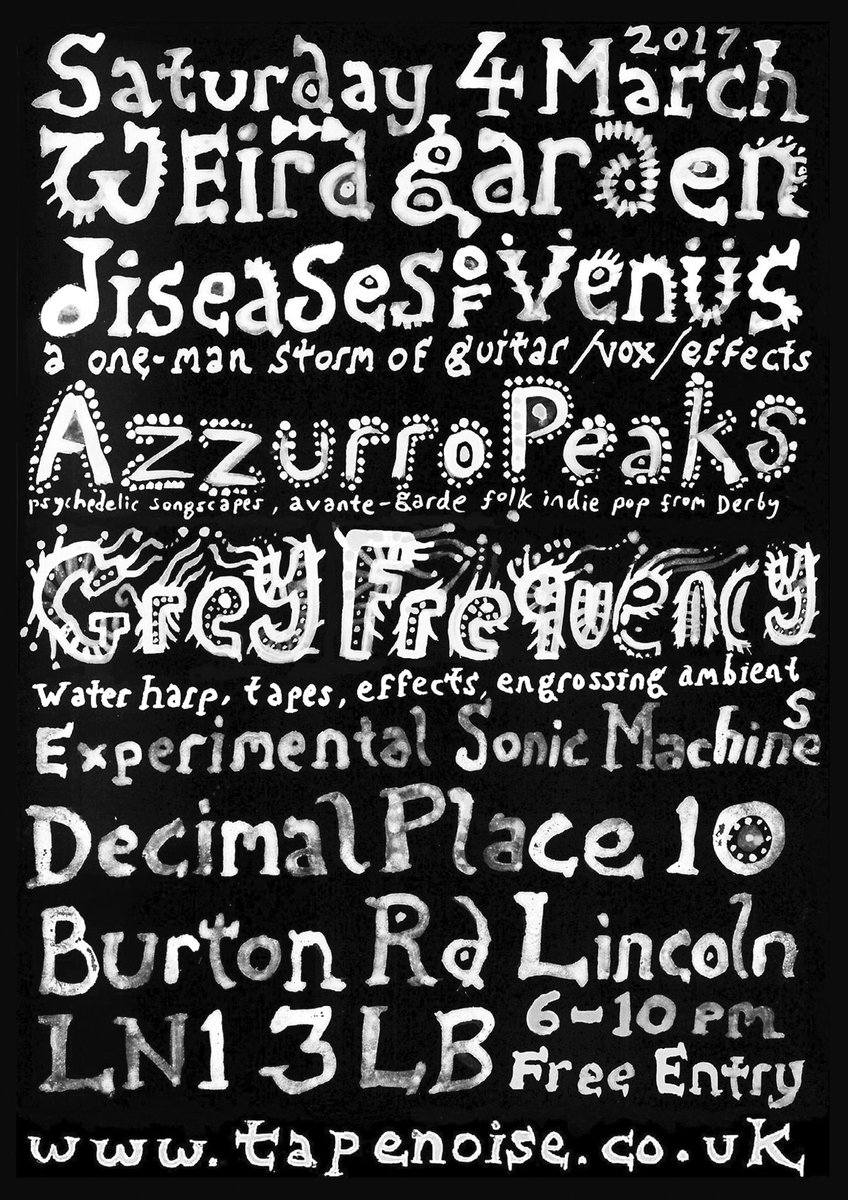 Saturday 4 March 2017
Weird garden
diseases OF Venus
a one-man storm of guitar/vox/effects
Azzurro Peaks
psychedelic songscapes, avante-garde folk indie pop from Derby
Grey Frequency
water harp, tapes, effects, engrossing ambient
Experimental Sonic Machines
Decimal Place 10
Burton Rd Lincoln
LN1 3LB
6-10 pm
Free Entry
www.tapenoise.co.uk